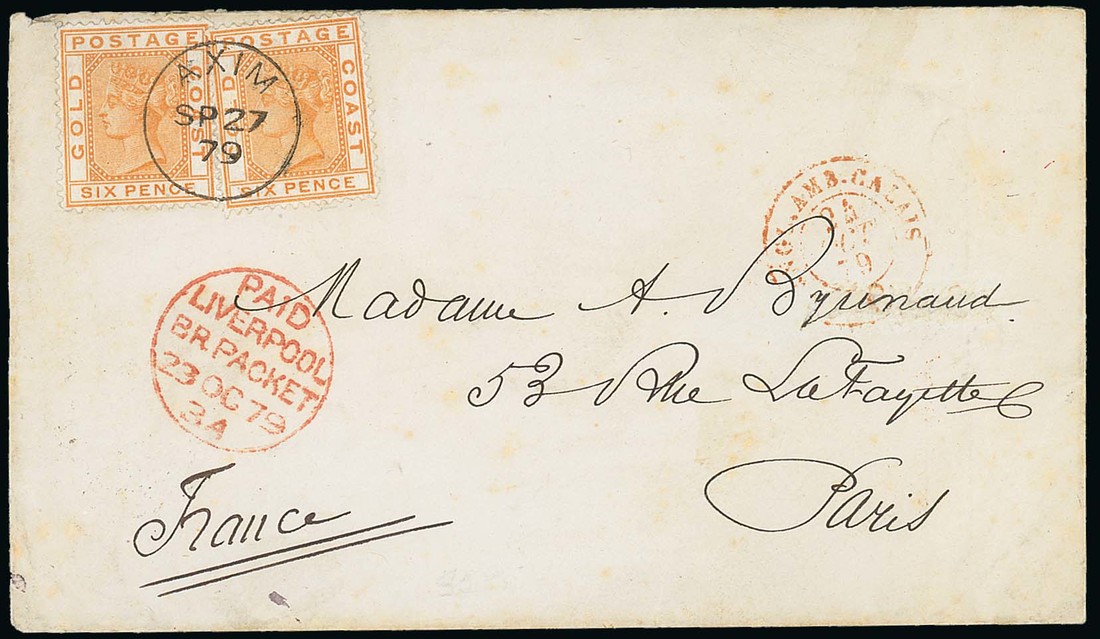 POSTAGE
GOLD COAST
SIX PENCE
POSTAGE
COAST
SIX PENCE
AXIM
SP 27
79
AMB. CALAIS
79
PAID
LIVERPOOL
BR. PACKET
23 OC 79
3A
Madame A.
53 Rue LaFayette
Paris
France